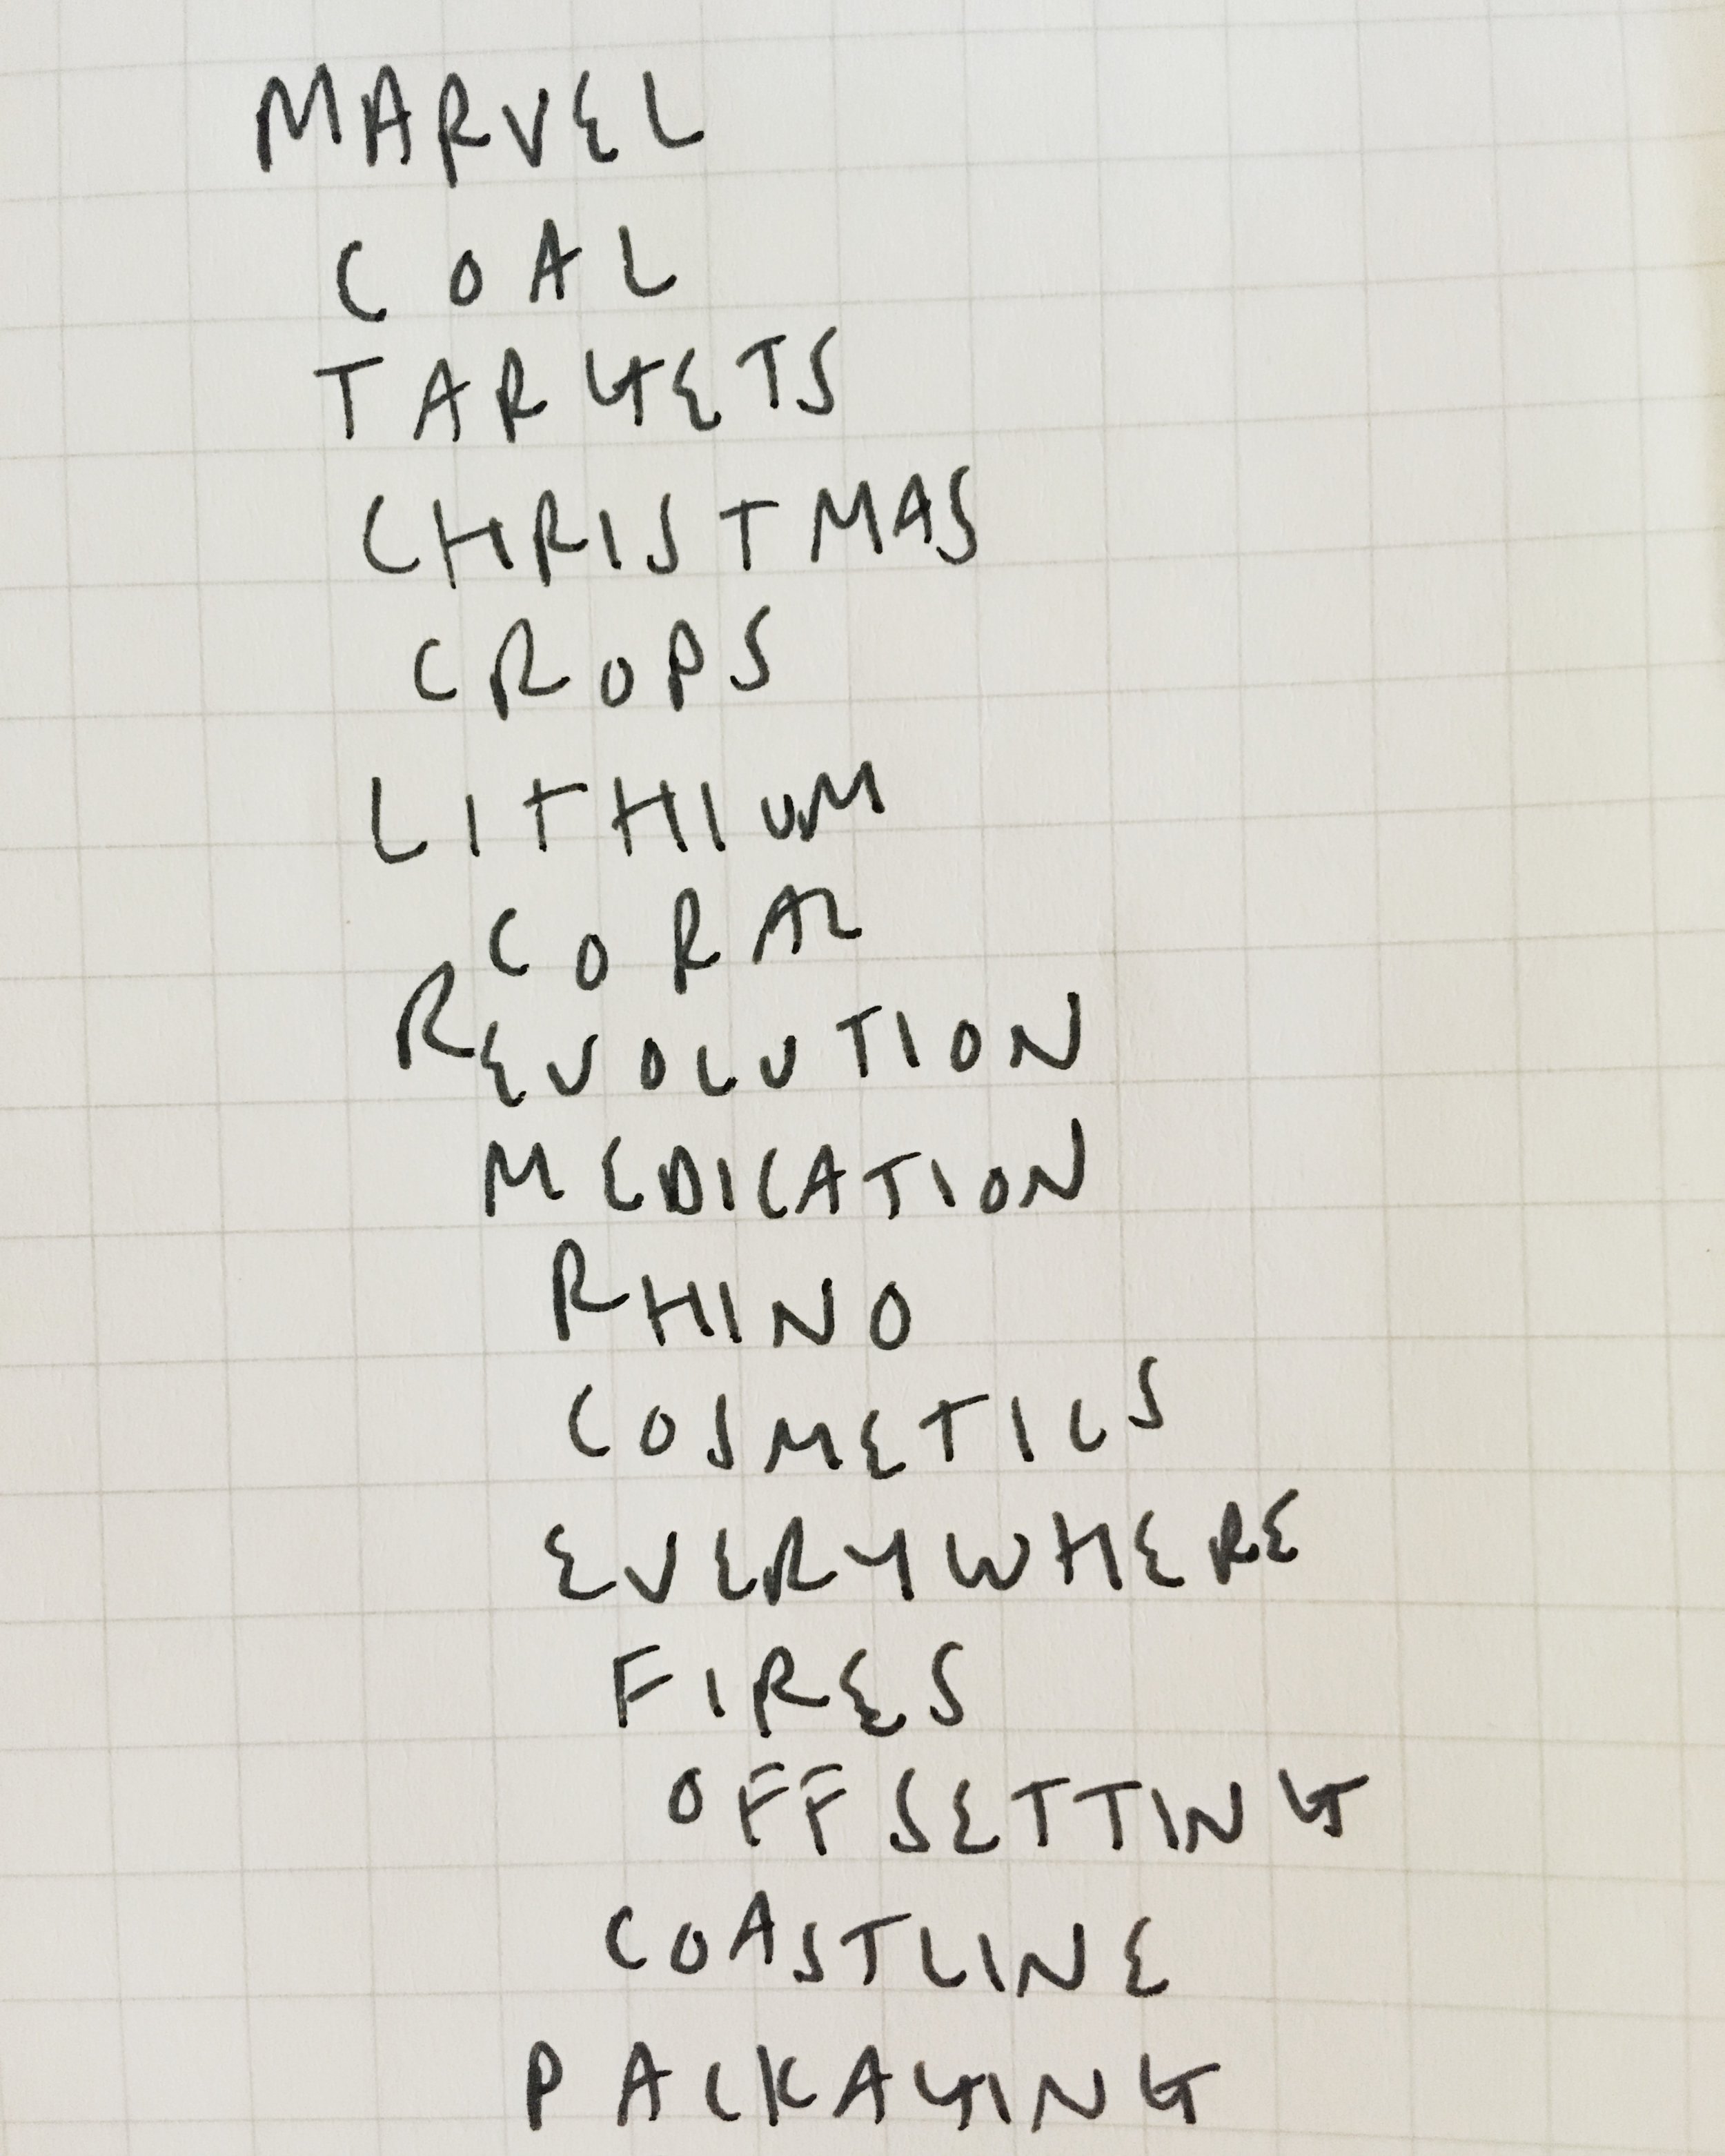 MARVEL
COAL
TARGETS
CHRISTMAS
CROPS
LITHIUM
CORAL
REVOLUTION
MEDICATION
RHINO
COSMETICS
EVERYWHERE
FIRES
OFFSETTING
COASTLINE
PACKAGING